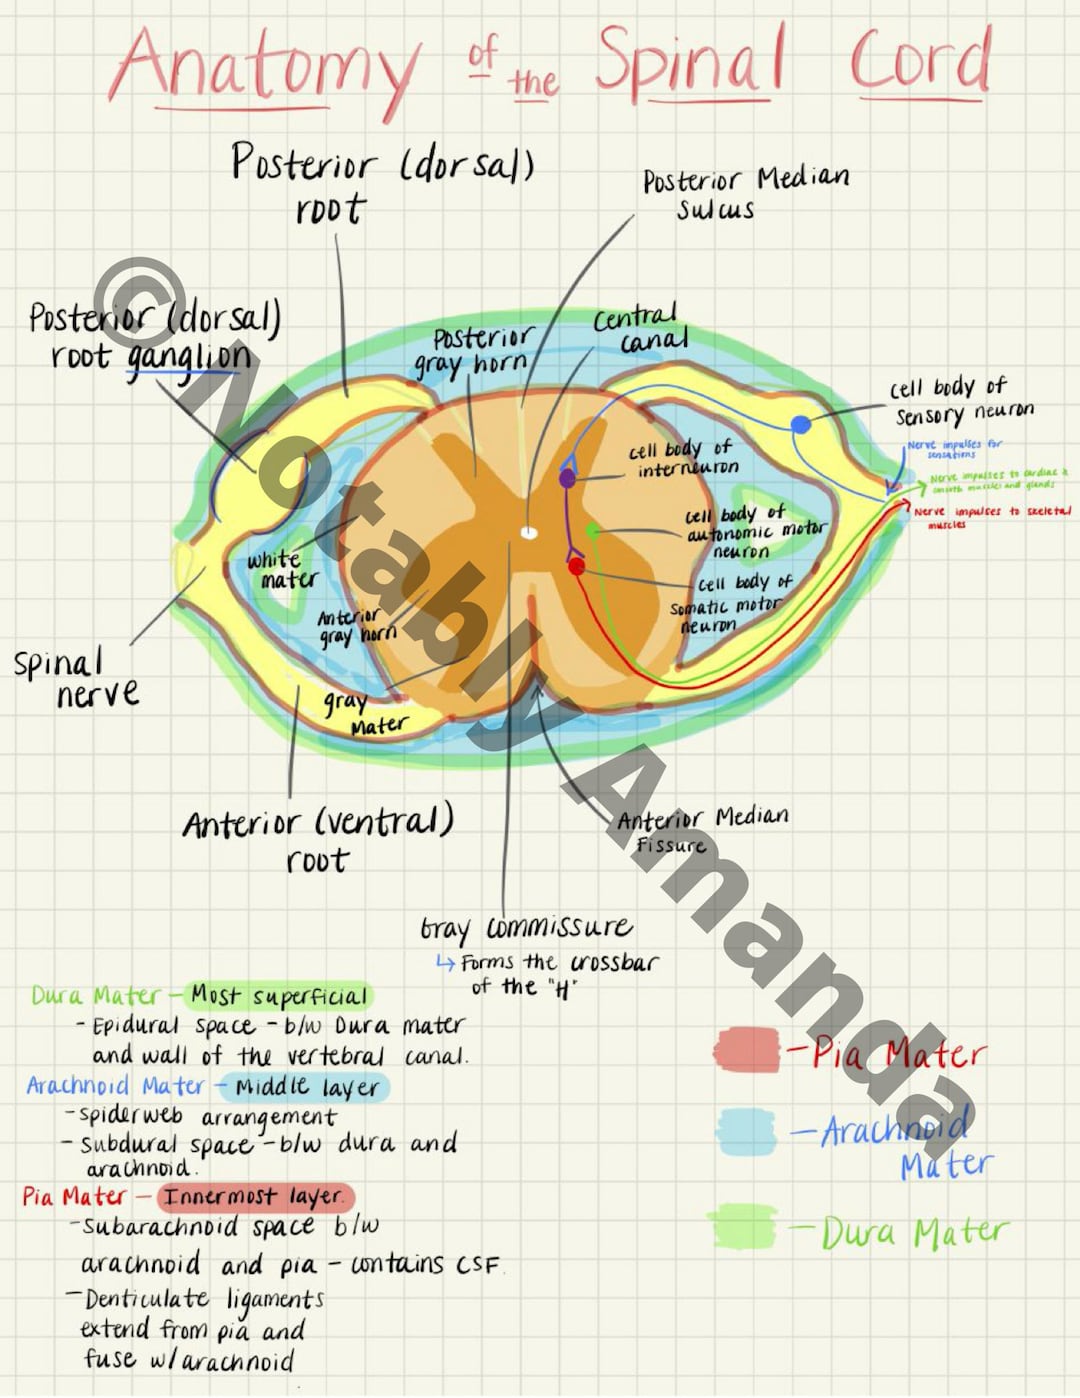 Anatomy of the Spinal Cord
Posterior (dorsal)
root
Posterior Median
Sulcus
Posterior (dorsal)
root ganglion
Posterior
gray horn
Central
canal
cell body of
Sensory neuron
Nerve impulses for
sensations
Nerve impulses to cardiac &
smooth muscles and glands
Nerve impulses to skeletal
muscles
cell body of
interneuron
cell body of
autonomic motor
neuron
cell body of
Somatic motor
neuron
white
mater
Anterior
gray horn
gray
Mater
Spinal
nerve
Anterior (ventral)
root
Anterior Median
Fissure
Gray commissure
↳ Forms the crossbar
of the "H"
Dura Mater - Most superficial
- Epidural space - b/w Dura mater
and wall of the vertebral canal.
Arachnoid Mater - Middle layer
- Spiderweb arrangement
- Subdural space - b/w dura and
arachnoid.
Pia Mater - Innermost layer.
- Subarachnoid space b/w
arachnoid and pia - contains CSF.
- Denticulate ligaments
extend from pia and
fuse w/arachnoid
- Pia Mater
- Arachnoid
Mater
- Dura Mater
© Notably Amanda